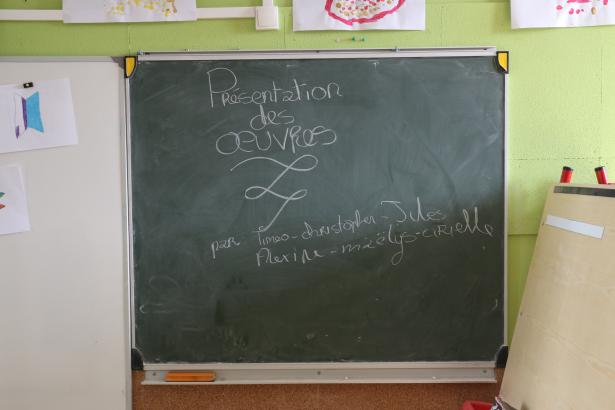 Présentation
des
ŒUVRES
par Timeo - christopher - Jules
Alexine - maëlys - cirielle